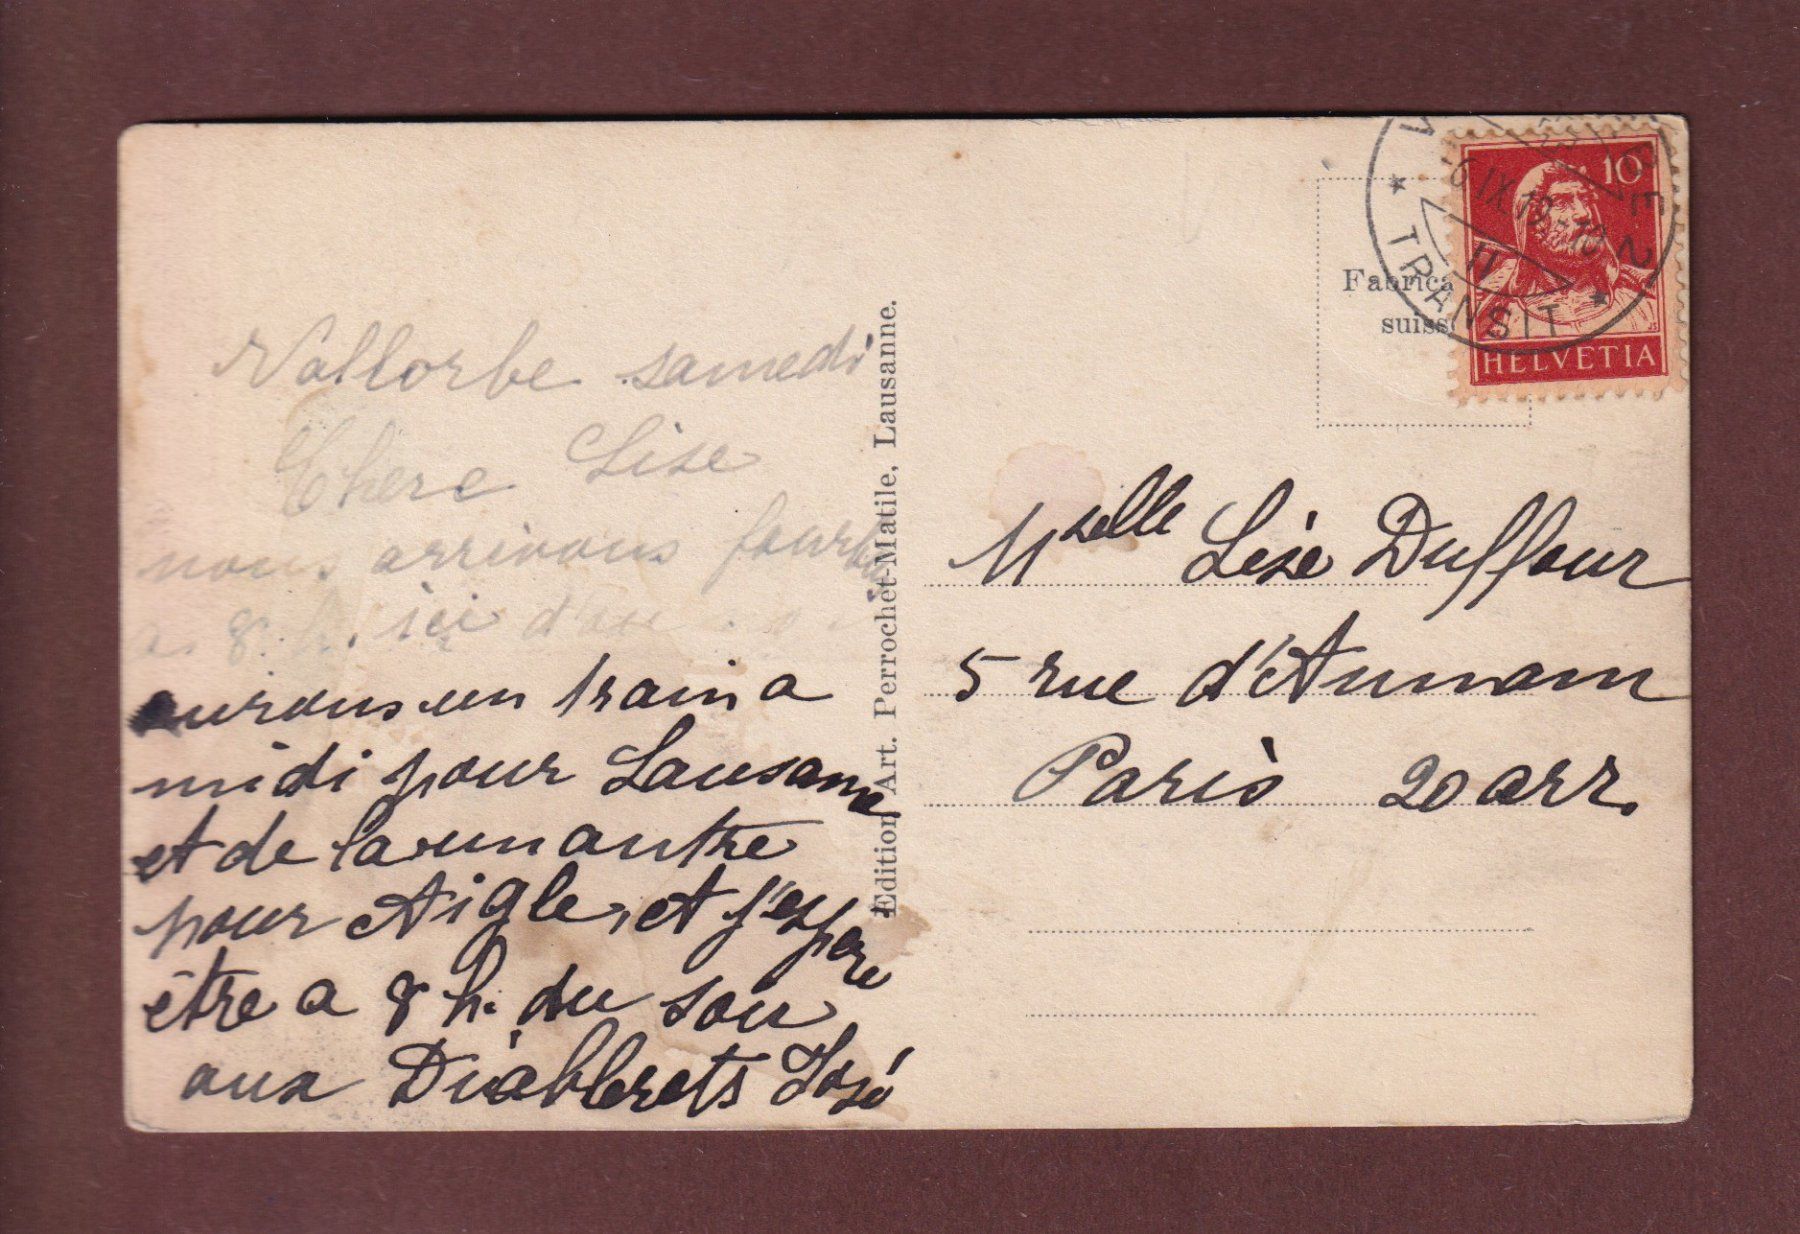 Vallorbe samedi
Chere Lise
nous arrivons
a 8 h. ici
aurons un train a
midi pour Lausanne
et de la un autre
pour Aigle, et j'espere
être a 8 h. du soir
aux Diablerets José
Edition Art. Perrochet-Matile, Lausanne.
10
HELVETIA
TRANSIT
6 IX 19-10
II
Fabrica
suiss
Mselle Lise Duffour
5 rue d'Annam
Paris 20 arr.